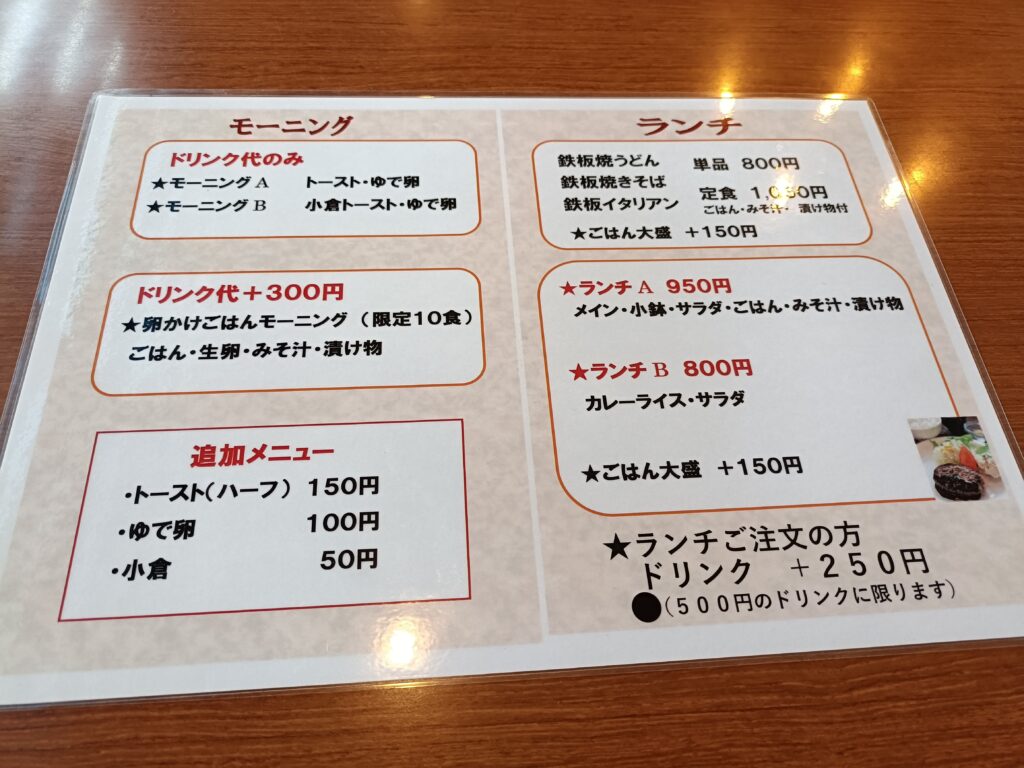 モーニング
ドリンク代のみ
★モーニングA トースト・ゆで卵
★モーニングB 小倉トースト・ゆで卵
ドリンク代+300円
★卵かけごはんモーニング (限定10食)
ごはん・生卵・みそ汁・漬け物
追加メニュー
・トースト(ハーフ) 150円
・ゆで卵 100円
・小倉 50円
ランチ
鉄板焼うどん 単品 800円
鉄板焼きそば
鉄板イタリアン 定食
ごはん・みそ汁・漬け物付
★ごはん大盛 +150円
★ランチA 950円
メイン・小鉢・サラダ・ごはん・みそ汁・漬け物
★ランチB 800円
カレーライス・サラダ
★ごはん大盛 +150円
★ランチご注文の方
ドリンク +250円
●(500円のドリンクに限ります)